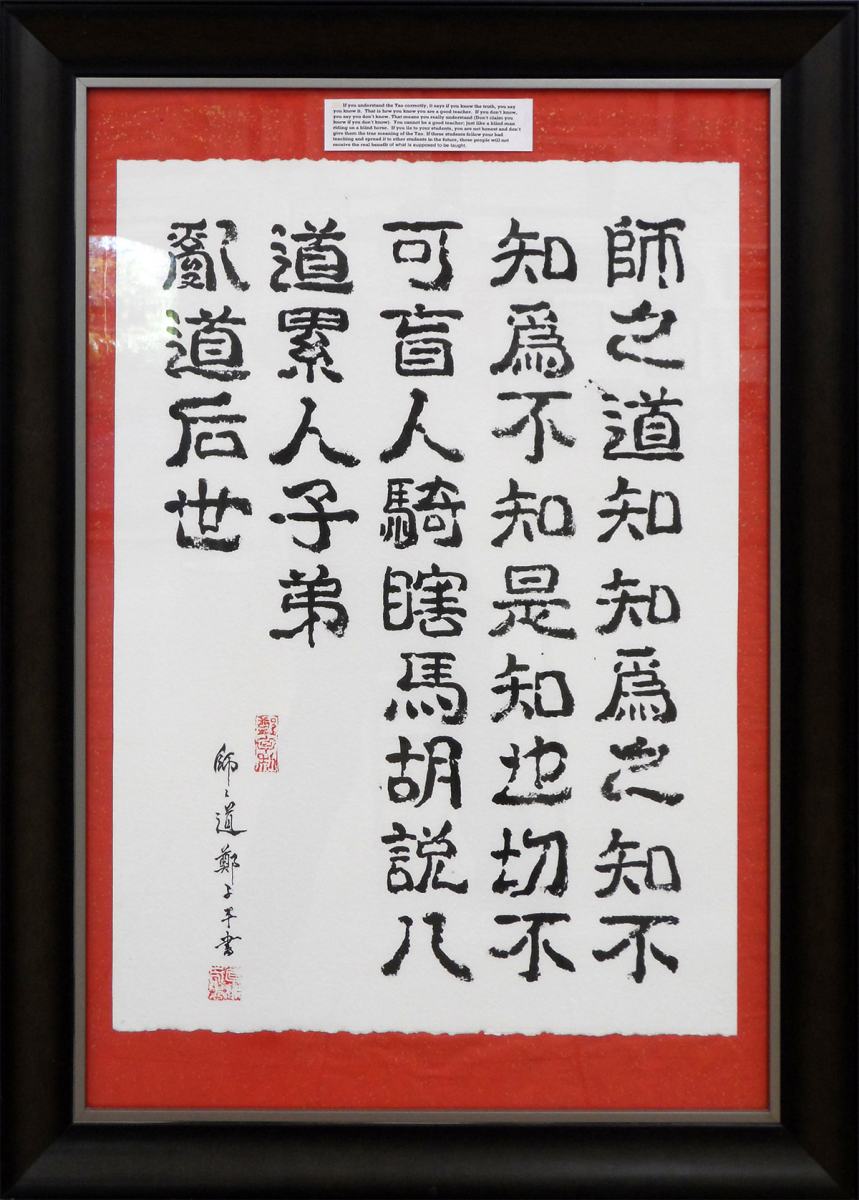 If you understand the Tao correctly, it says if you know the truth, you say
you know it. That is how you know you are a good teacher. If you don't know,
you say you don't know. That means you really understand (Don't claim you
know if you don't know). You cannot be a good teacher; just like a blind man
riding on a blind horse. If you lie to your students, you are not honest and don't
give them the true meaning of the Tao. If these students follow your bad
teaching and spread it to other students in the future, those people will not
receive the real benefit of what is supposed to be taught.
師之道知知爲之知不
知爲不知是知也切不
可盲人騎瞎馬胡説八
道累人子弟
亂道后世
師之道鄭
書